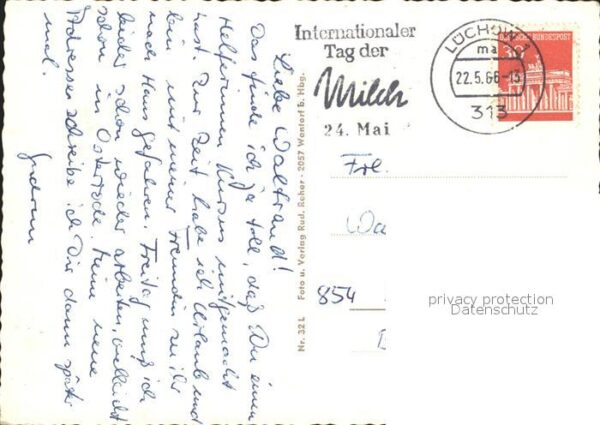 Internationaler
Tag der
Milch
24. Mai
LÜCHOW 1
ma
22.5.66-13
313
DEUTSCHE BUNDESPOST
30
Liebe Waltraud!
Das finde ich ja toll, daß Du einen
Helferinnen Kursus mitgemacht
hast. Zur Zeit habe ich Urlaub und
bin mit meiner Freundin zu ihr
nach Haus gefahren. Freitag muß ich
leider schon wieder arbeiten, vielleicht
schon in Osterode. Meine neue
Adresse schreibe ich Dir dann später
mal.
Gudrun
Nr. 32 L Foto u. Verlag Rud. Reher - 2057 Wentorf b. Hbg.
Frl.
Wa
854
privacy protection
Datenschutz